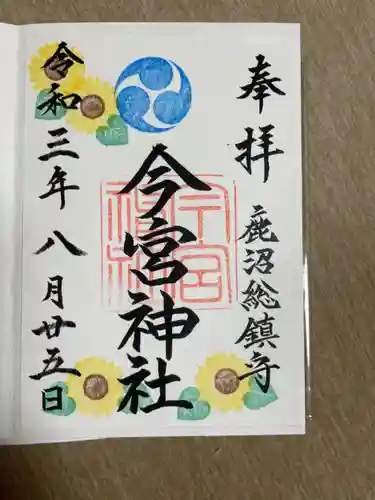 奉拝
鹿沼総鎮守
今宮神社
今宮神社
令和三年八月廿五日